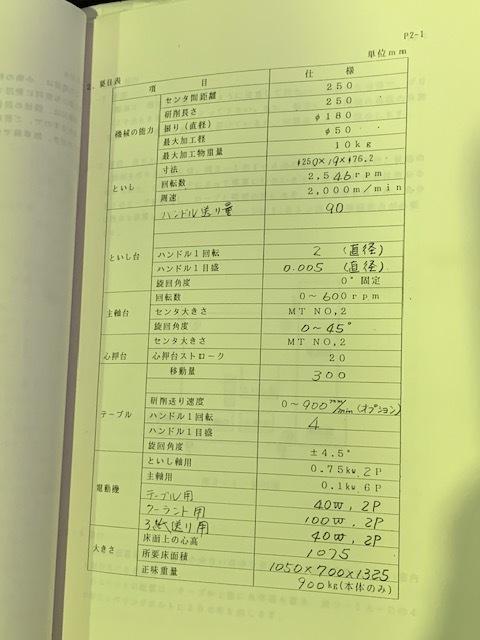 P2-1
単位mm
2. 要目表
項 目 仕 様
機械の能力 センタ間距離 250
研削長さ 250
振り(直径) φ180
最大加工径 φ50
最大加工物重量 10kg
といし 寸法 φ250×19×φ76.2
回転数 2,546rpm
周速 2,000m/min
といし台 ハンドル送り量 90
ハンドル1回転 2 (直径)
ハンドル1目盛 0.005 (直径)
旋回角度 0°固定
主軸台 回転数 0~600rpm
センタ大きさ MT NO,2
旋回角度 0~45°
心押台 センタ大きさ MT NO,2
心押台ストローク 20
テーブル 移動量 300
研削送り速度 0~900mm/min(オプション)
ハンドル1回転 4
ハンドル1目盛
旋回角度 ±4.5°
電動機 といし軸用 0.75kw.2P
主軸用 0.1kw.6P
テーブル用 40W, 2P
クーラント用 100W, 2P
送り用 40W, 2P
大きさ 床面上の心高 1075
所要床面積 1050×700×1325
正味重量 900kg(本体のみ)